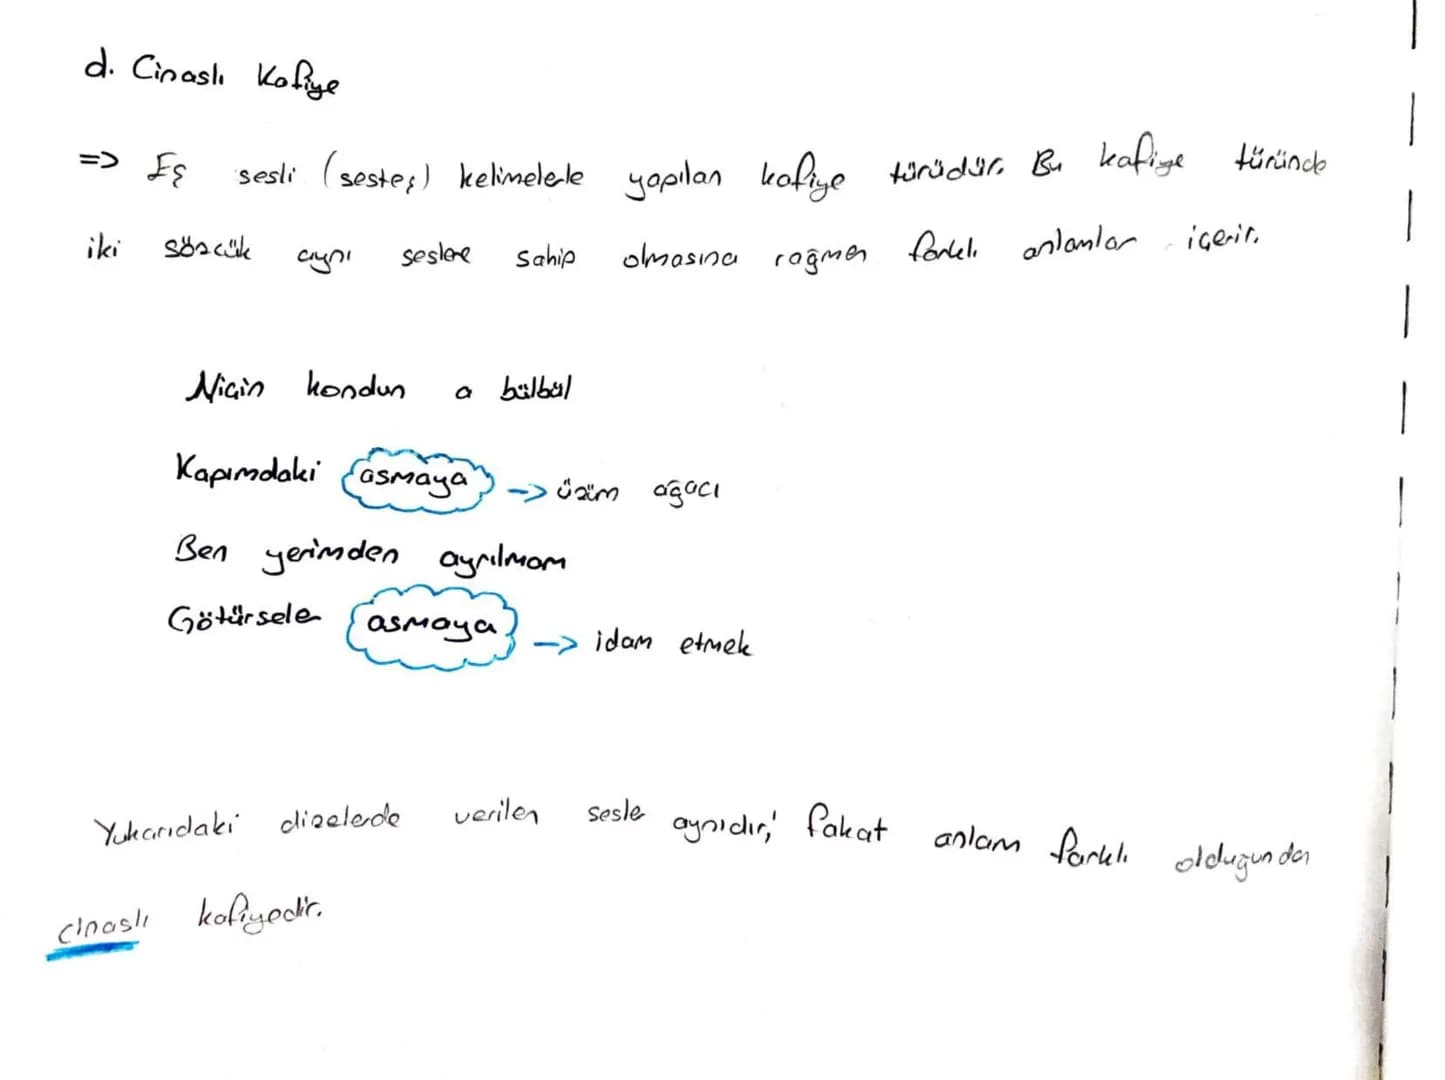 d. Cinaslı Kafiye
=> Eş sesli (sesteş) kelimelerle yapılan kafiye türüdür. Bu kafiye türünde
iki sözcük aynı seslere sahip olmasına rağmen farklı anlamlar içerir.
Niçin kondun a bülbül
Kapımdaki asmaya -> üzüm ağacı
Ben yerimden ayrılmam
Götürseler asmaya -> idam etmek
Yukarıdaki dizelerde verilen sesler aynıdır; fakat anlam farklı olduğundan
cinaslı kafiyedir.